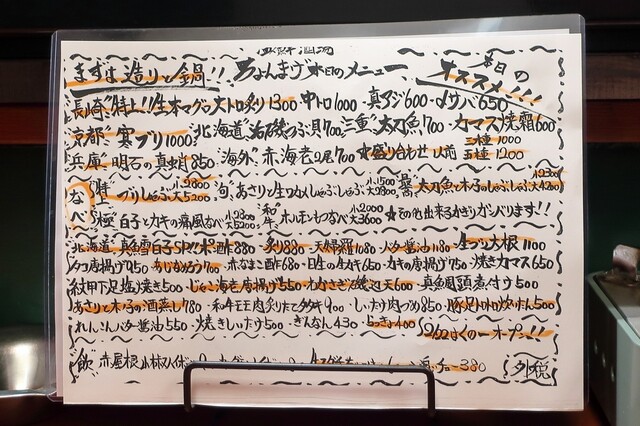 鮮 酒場
まずは、造りと鍋!! ちょんまげ 本日のメニュー 本日のオススメ!!!
長崎"特上!!生本マグロ大トロ炙り1300 中トロ1000・真アジ600・〆サバ650
京都"寒ブリ1000 北海道"活磯つぶ貝700 三重"太刀魚700・カマス焼霜600
兵庫"明石の真蛸850 海外"赤海老2尾700 ☆盛り合わせ一人前 三種1000 五種1200
なべ 特上"ブリしゃぶ 小2800 大5200 旬"あさりと生ワカメしゃぶしゃぶ 小1500 大2800 太刀魚と木の子のしゃぶしゃぶ 小2300 大4200
極"白子とカキの痛風なべ 小2800 大5300 和牛"ホルモンもつなべ 小2000 大3600 ☆その他出来るかぎりガンバります!!
北海道"真鱈白子SP!!ポン酢880・炙り880・天婦羅1080・バター醤油1180・
タコ唐揚げ950・あじなめろう700・赤なまこ酢680・カキの唐揚げ750・焼きカマス650
紋甲下足塩焼き500・じゃこ海老唐揚げ550・わかさぎ磯辺天600・真鯛頭煮付け500
あさりと木の子の酒蒸し780・和牛 肉炙りたたき 900・しいたけ肉づめ850・豚足トロトロ炊たん500
れんこんバター醤油550・焼きしいたけ500・ぎんなん430・らっきょ400
飲"赤屋根 380 外税